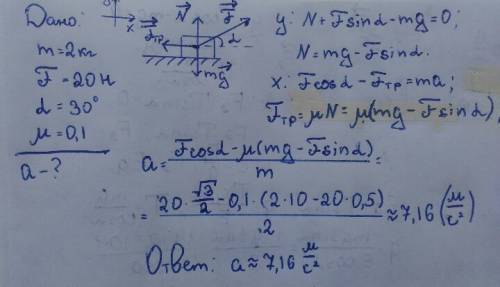 Дано:
m = 2 кг
F = 20 Н
α = 30°
μ = 0,1
a - ?
y
x
N⃗
F⃗
F⃗тр
α
mg⃗
y: N + Fsinα - mg = 0;
N = mg - Fsinα.
x: Fcosα - Fтр = ma;
Fтр = μN = μ(mg - Fsinα),
a = (Fcosα - μ(mg - Fsinα)) / m =
= (20 · √3/2 - 0,1 · (2 · 10 - 20 · 0,5)) / 2 ≈ 7,16 (м/с²)
Ответ: a ≈ 7,16 м/с²